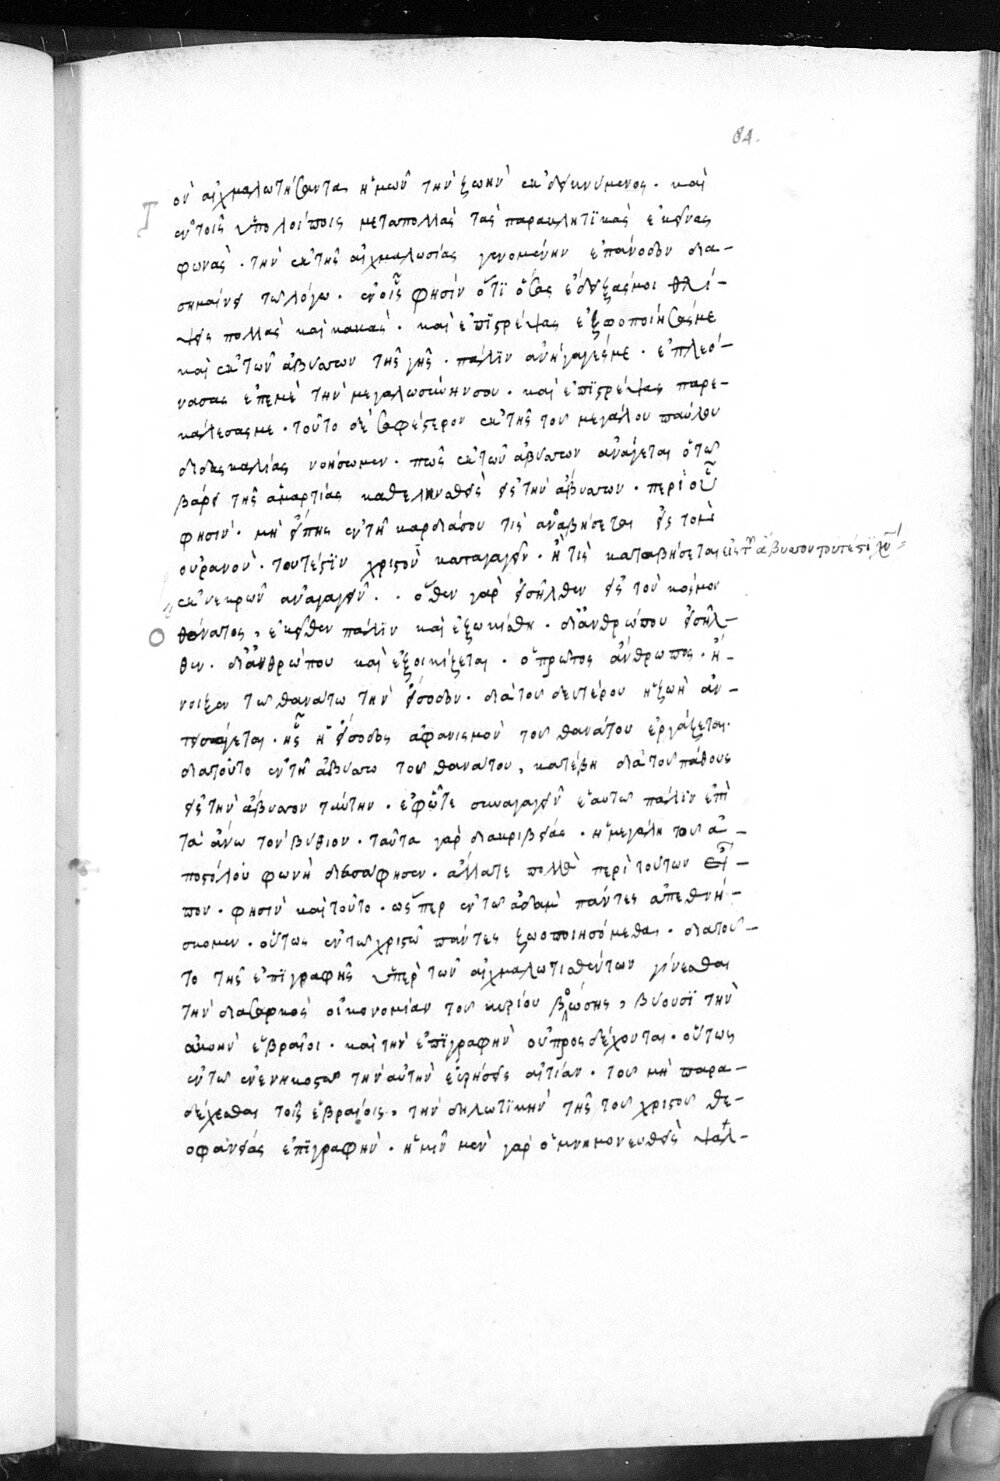 84.
ὸν αἰχμαλωτήσαντα ἡμῶν τὴν ζωὴν ἐκδεικνύμενος. καὶ
ἐν τοῖς ὑπολοίποις μεταπολλὰς τὰς παρακλητϊκὰς ἐκείνας
φωνὰς. τὴν ἐκ τῆς αἰχμαλωσίας γενομένην ἐπάνοδον δια-
σημαίνει τῶ λόγω. ἐν οἷς φησὶν ὅτϊ ὅσας ἔδειξάς μοι θλί-
ψεις πολλὰς καὶ κακὰς. καὶ ἐπϊστρέψας ἐζωοποιήσάς με
καὶ ἐκ τῶν ἀβύσσων τῆς γῆς. πάλϊν ἀνήγαγές με. ἐπλεό-
νασας ἐπ' ἐμὲ τὴν μεγαλωσύνην σου. καὶ ἐπϊστρέψας παρε-
κάλεσας με. τοῦτο δὲ σαφέστερον ἐκ τῆς του μεγάλου παύλου
διδασκαλίας νοήσωμεν. πῶς ἐκ τῶν ἀβύσσων ἀνάγεται ὅτω
βάρει τῆς ἁμαρτίας καθελκυσθεὶς εἰς τὴν ἄβυσσον. περὶ οὗ
φησὶν. μὴ εἴπῃς ἐν τῇ καρδία σου τίς ἀναβήσεται εἰς τὸν
οὐρανὸν. τουτέστϊν χριστὸν καταγαγεῖν. ἢ τίς καταβήσεται εἰς τὴν ἄβυσσον τουτέστϊ χν
ἐκ νεκρῶν ἀναγαγεῖν. . ὅθεν γὰρ εἰσῆλθεν εἰς τὸν κόσμον
θάνατος, ἐκεῖθεν πάλϊν καὶ ἐξωκίσθη. δι' ἀνθρώπου εἰσῆλ-
θεν. δι' ἀνθρώπου καὶ ἐξοικίζεται. ὁ πρῶτος ἄνθρωπος. ἤ-
νοιξεν τω θανάτω τὴν εἴσοδον. διὰ του δευτέρου ἡ ζωὴ ἀν-
τεισάγεται. ἧς ἡ εἴσοδος ἀφανισμὸν του θανάτου ἐργάζεται.
διατοῦτο ἐν τῇ ἀβύσσω του θανάτου, κατέβη διὰ του πάθους
εἰς τὴν ἄβυσσον ταύτην. ἐφῶτε συναγαγεῖν ἑαυτω πάλϊν ἐπὶ
τὰ ἄνω τὸν βύθιον. ταῦτα γὰρ διακριβείας. ἡ μεγάλη του ἀ-
ποστόλου φωνὴ διεσάφησεν. ἄλλα τε πολλὰ περὶ τούτων εἰ-
πον. φησὶν καὶ τοῦτο. ὥσπερ ἐν τω ἀδὰμ πάντες ἀπεθνή-
σκομεν. οὕτως ἐν τω χριστῶ πάντες ζωοποιησόμεθα. διατοῦ-
το τῆς ἐπϊγραφῆς ὑπὲρ τῶν αἰχμαλωτισθέντων γίνεσθαι
τὴν διασαρκὸς οἰκονομίαν του κυρίου βοώσης, βύουσϊ τὴν
ἀκοὴν ἑβραῖοι. καὶ τὴν ἐπϊγραφὴν οὐ προσδέχονται. οὕτως
ἐν τω ἐνενηκοστω τὴν αὐτὴν εὑρήσεις αἰτίαν. του μὴ παρα-
δέχεσθαι τοῖς ἑβραίοις. τὴν δηλωτϊκὴν τῆς του χριστου θε-
οφανείας ἐπϊγραφὴν. ἡμῖν μὲν γὰρ ὁ μνημονευθεὶς ψαλ-